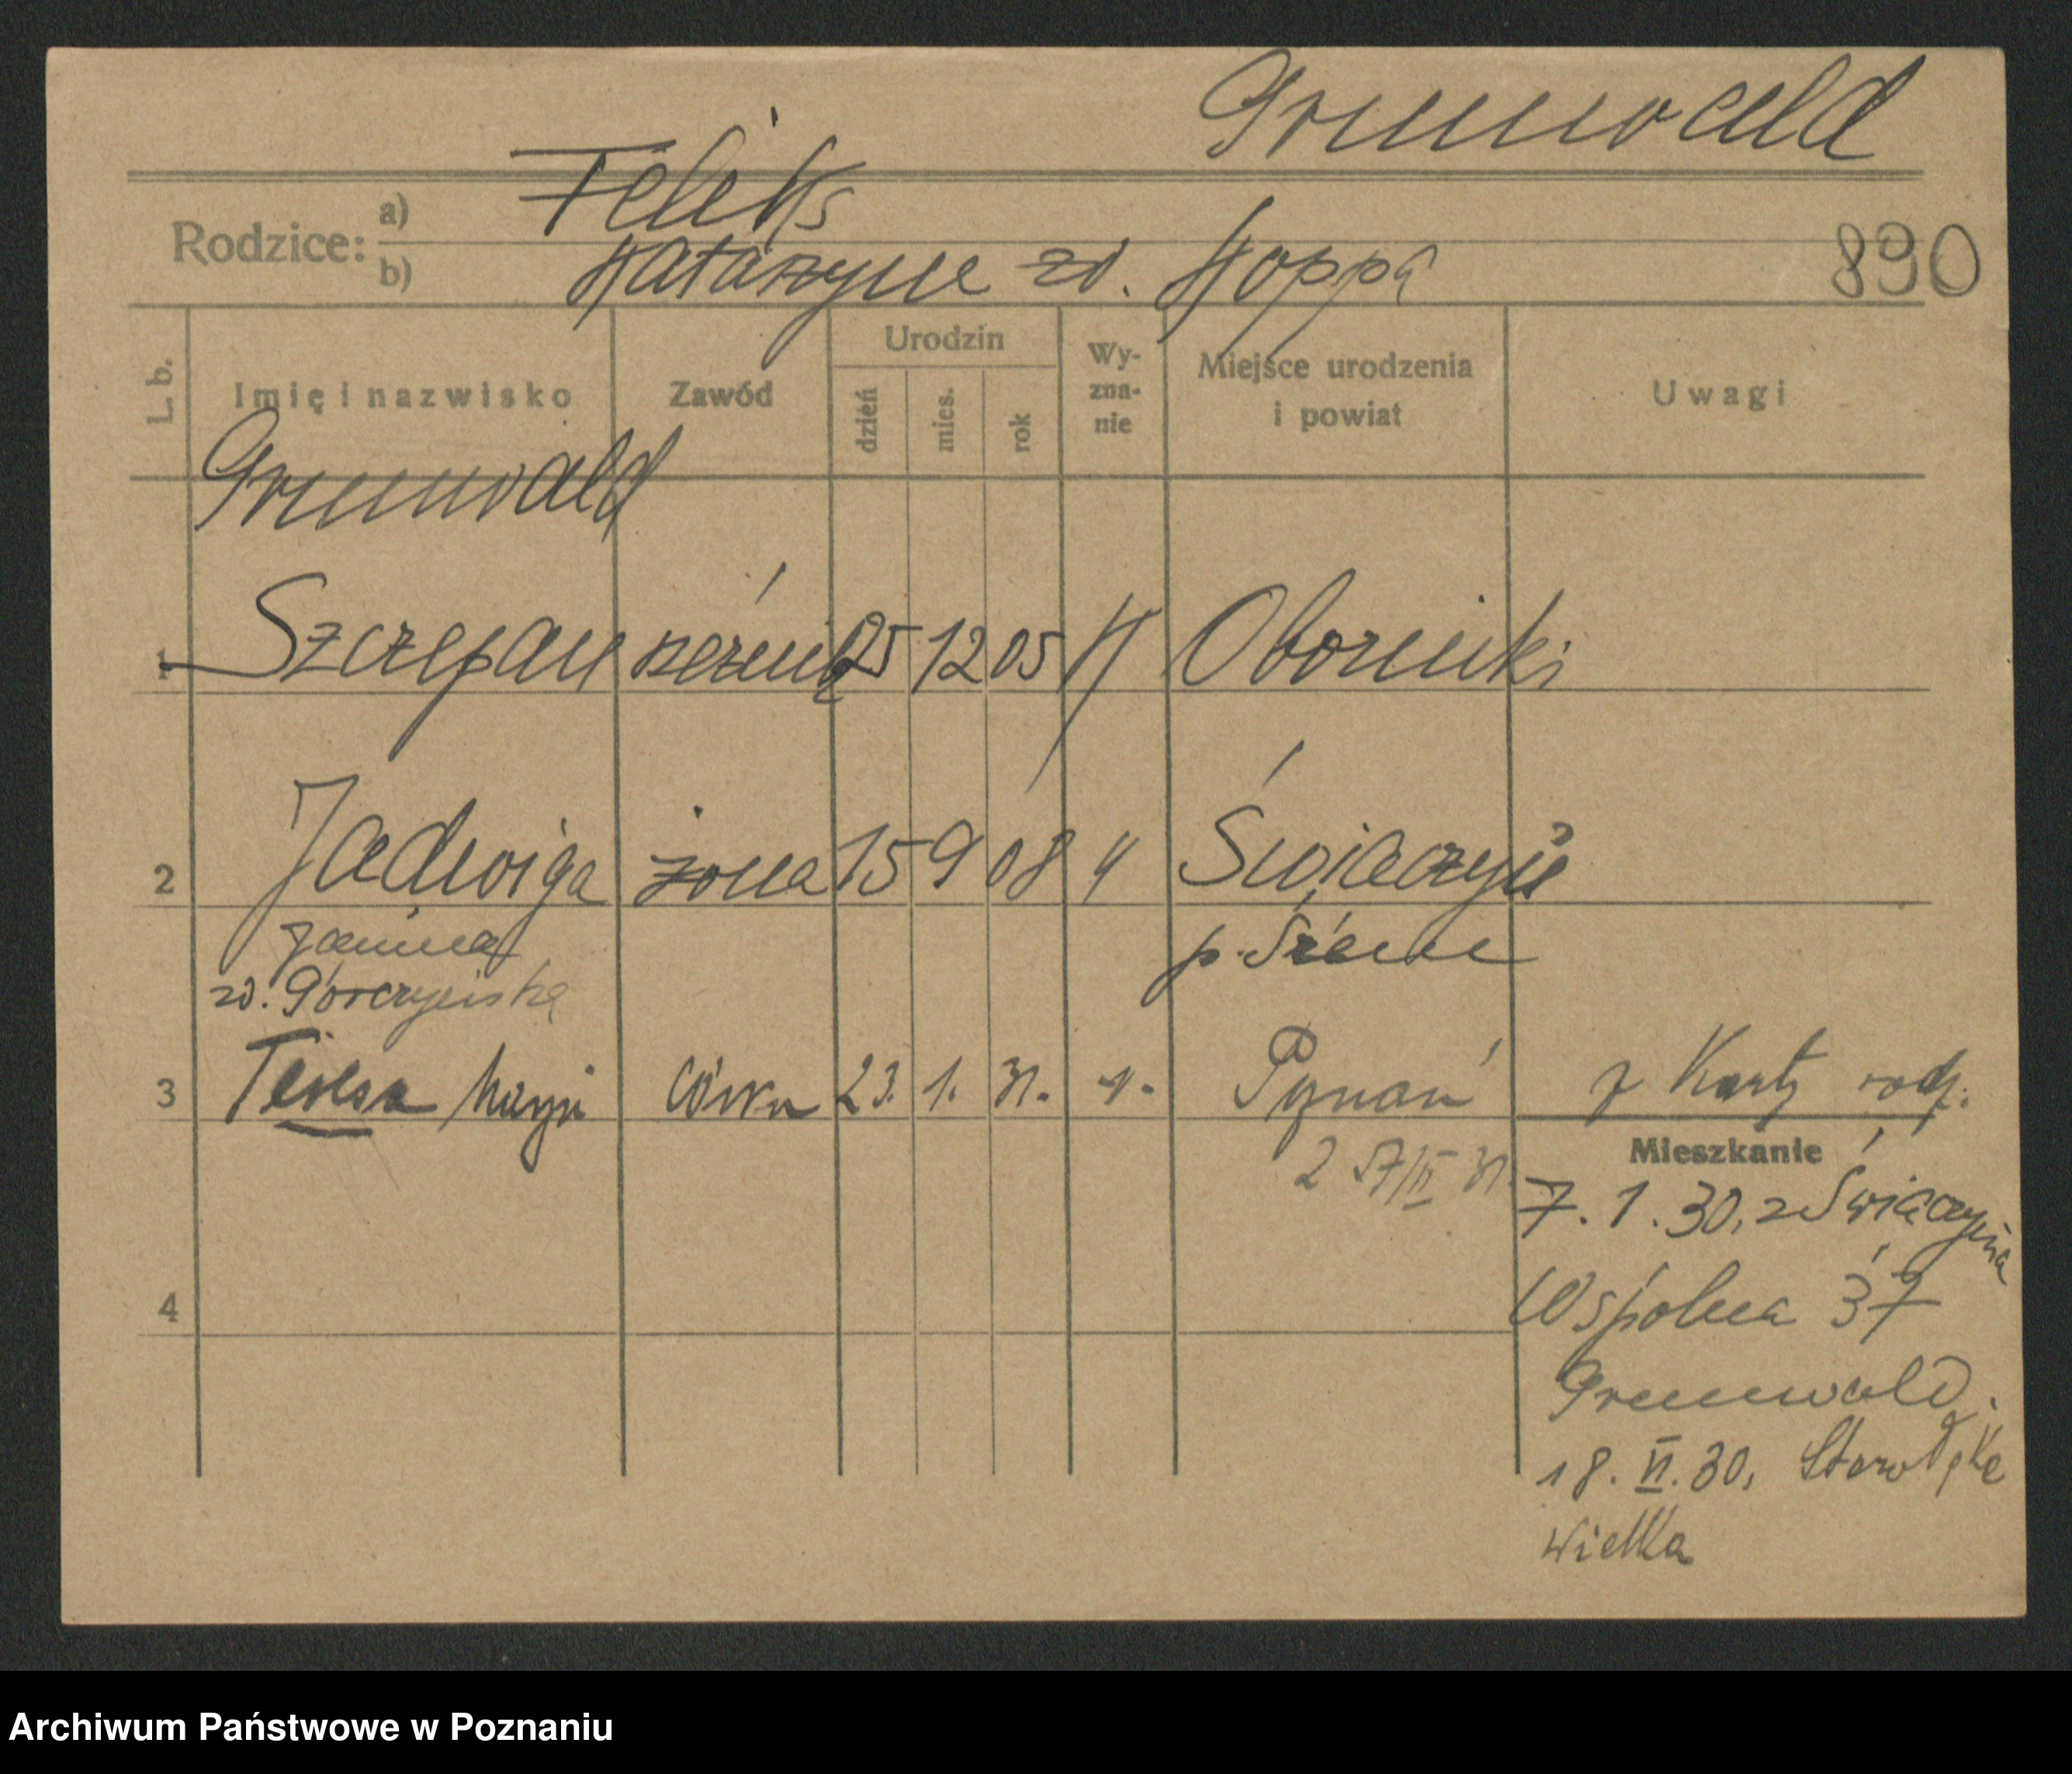 Grunwald
Rodzice: a) Feliks
b) Katarzyna zd. Hoppa
890
L. b.
Imię i nazwisko
Zawód
Urodzin
dzień
mies.
rok
Wy-
zna-
nie
Miejsce urodzenia
i powiat
Uwagi
Grunwald
1 Szczepan rzeźnik 25 12 05 K Oborniki
2 Jadwiga żona 15 9 08 K Święczyń
Janina p. Śrem
zd. Górczyńska
3 Teresa Marja córka 23. 1. 31. K. Poznań z Karty rodz.
2 57/III 31
Mieszkanie
7. 1. 30, z Święczynia
Wspólna 37
Grunwald.
4
18. VI. 30, Starołęka
Wielka
Archiwum Państwowe w Poznaniu